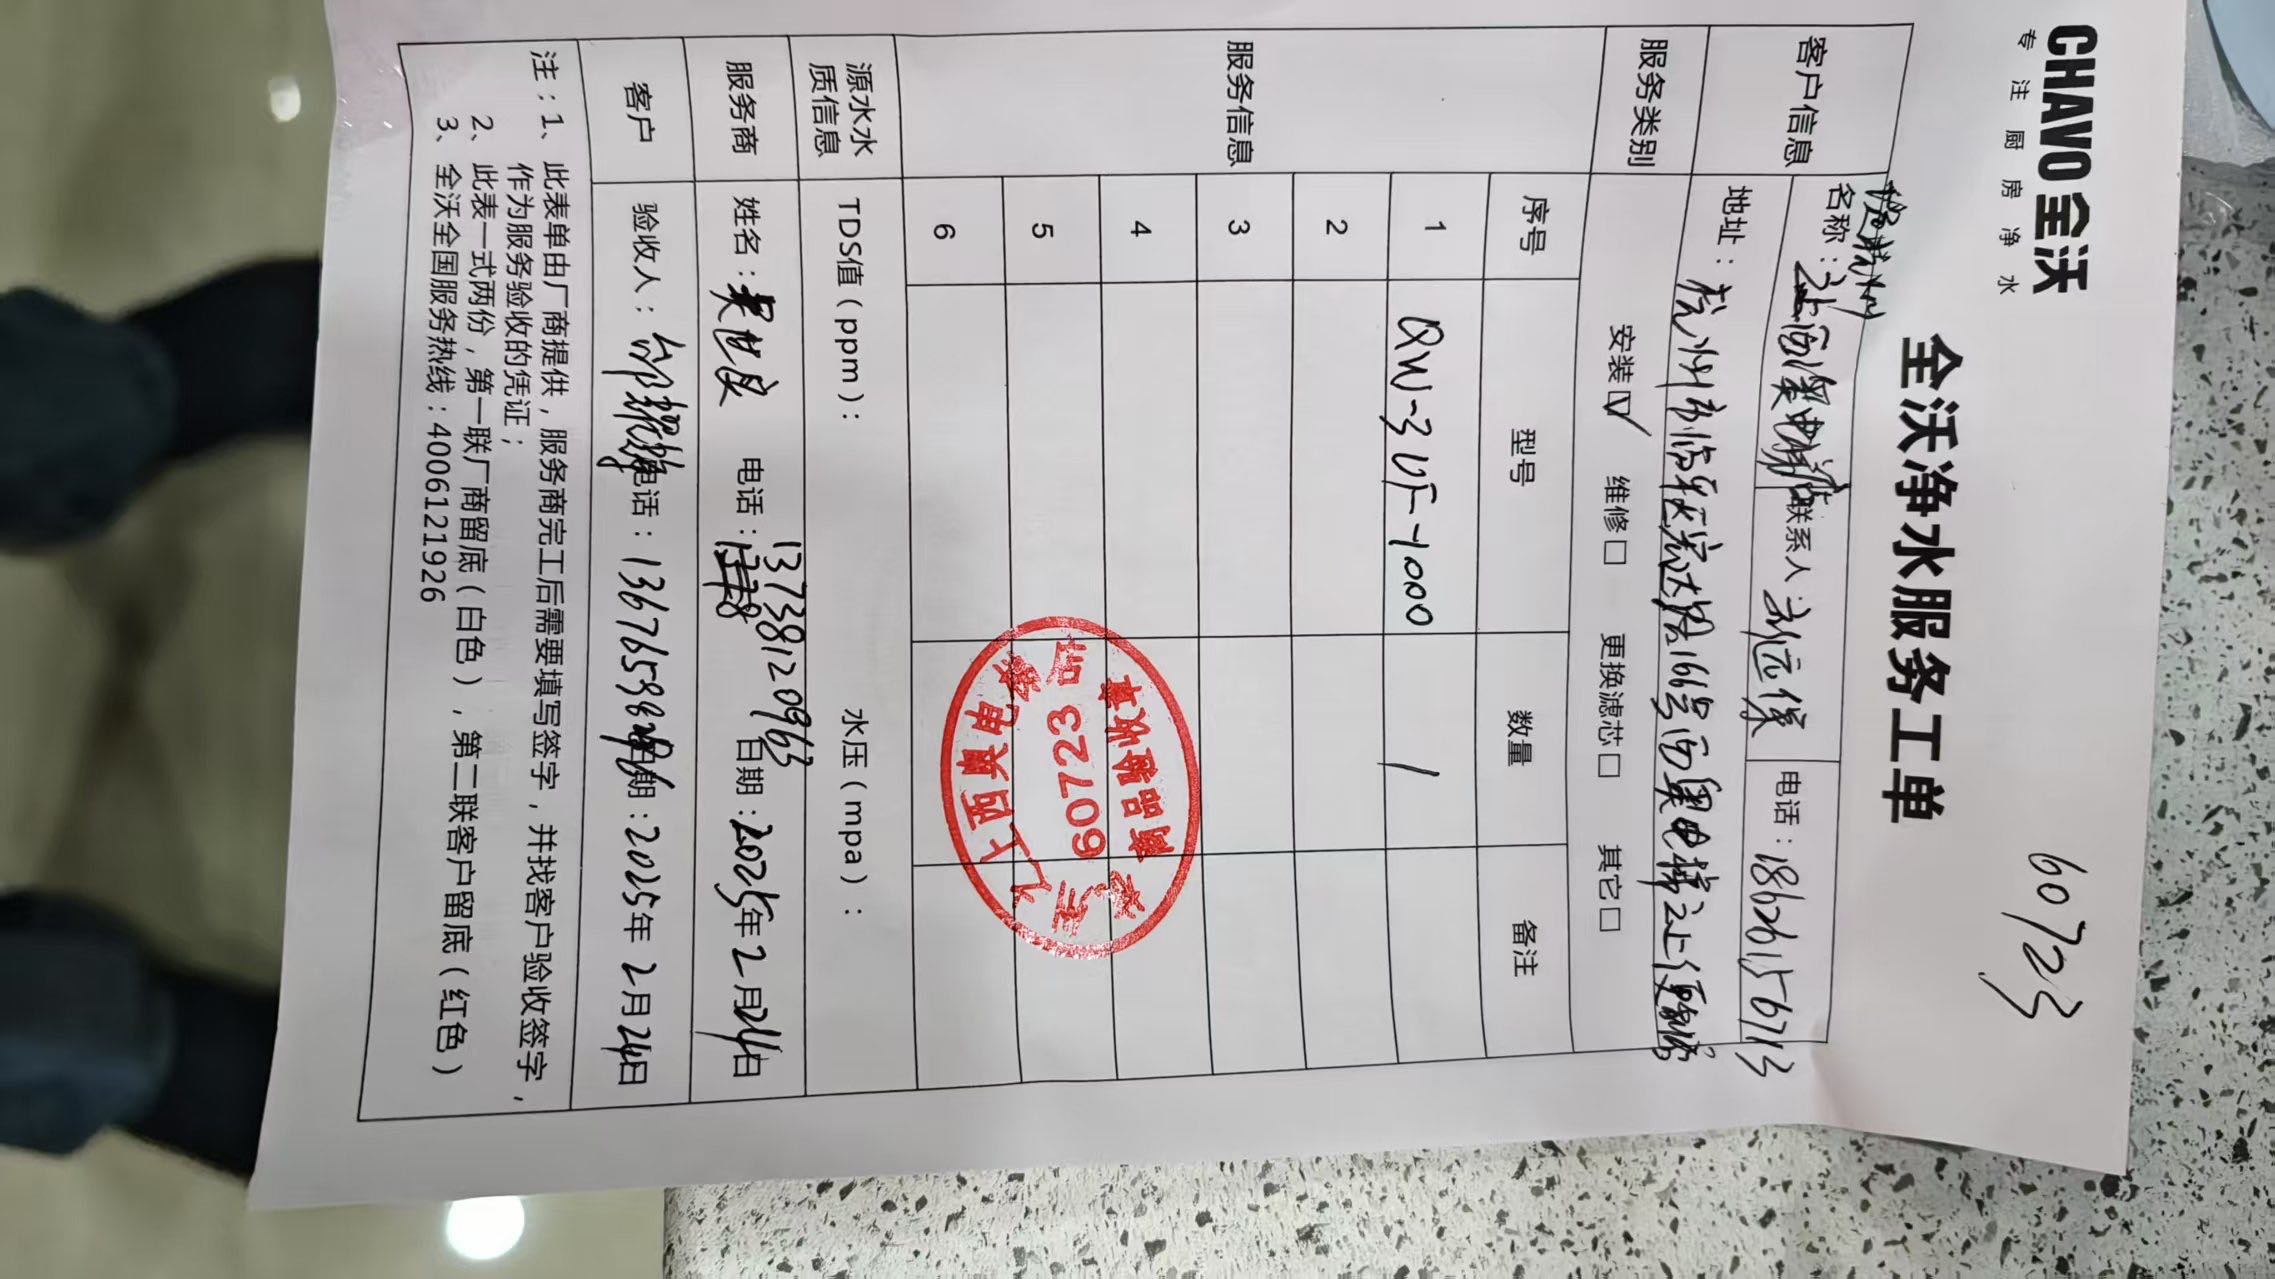 CHAVO全沃
专注厨房净水
60723
全沃净水服务工单
客户信息
名称：上海西奥电梯
联系人：
电话：18626156713
地址：杭州市临平区宏达路166号西奥电梯
服务类别
安装☑ 维修□ 更换滤芯□ 其它□
服务信息
序号 型号 数量 备注
1 QW-3UF-1000 1
2
3
4
5
6
西奥电梯
60723
商品验收章
源水水质信息
TDS值（ppm）： 水压（mpa）：
服务商
姓名：吴世良 电话：13738120963 日期：2025年2月24日
客户
验收人： 电话：13676598296 日期：2025年2月24日
注：1、此表单由厂商提供，服务商完工后需要填写签字，并找客户验收签字，
作为服务验收的凭证；
2、此表一式两份，第一联厂商留底（白色），第二联客户留底（红色）
3、全沃全国服务热线：4006121926